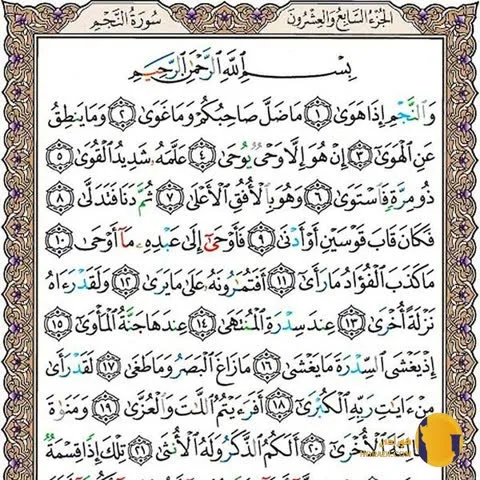 الجزء السابع والعشرون
سورة النجم
بِسْمِ اللَّهِ الرَّحْمَٰنِ الرَّحِيمِ
وَالنَّجْمِ إِذَا هَوَىٰ ١ مَا ضَلَّ صَاحِبُكُمْ وَمَا غَوَىٰ ٢ وَمَا يَنطِقُ
عَنِ الْهَوَىٰ ٣ إِنْ هُوَ إِلَّا وَحْيٌ يُوحَىٰ ٤ عَلَّمَهُ شَدِيدُ الْقُوَىٰ ٥
ذُو مِرَّةٍ فَاسْتَوَىٰ ٦ وَهُوَ بِالْأُفُقِ الْأَعْلَىٰ ٧ ثُمَّ دَنَا فَتَدَلَّىٰ ٨
فَكَانَ قَابَ قَوْسَيْنِ أَوْ أَدْنَىٰ ٩ فَأَوْحَىٰ إِلَىٰ عَبْدِهِ مَا أَوْحَىٰ ١٠
مَا كَذَبَ الْفُؤَادُ مَا رَأَىٰ ١١ أَفَتُمَارُونَهُ عَلَىٰ مَا يَرَىٰ ١٢ وَلَقَدْ رَآهُ
نَزْلَةً أُخْرَىٰ ١٣ عِندَ سِدْرَةِ الْمُنتَهَىٰ ١٤ عِندَهَا جَنَّةُ الْمَأْوَىٰ ١٥
إِذْ يَغْشَى السِّدْرَةَ مَا يَغْشَىٰ ١٦ مَا زَاغَ الْبَصَرُ وَمَا طَغَىٰ ١٧ لَقَدْ رَأَىٰ
مِنْ آيَاتِ رَبِّهِ الْكُبْرَىٰ ١٨ أَفَرَأَيْتُمُ اللَّاتَ وَالْعُزَّىٰ ١٩ وَمَنَاةَ
الثَّالِثَةَ الْأُخْرَىٰ ٢٠ أَلَكُمُ الذَّكَرُ وَلَهُ الْأُنثَىٰ ٢١ تِلْكَ إِذًا قِسْمَةٌ